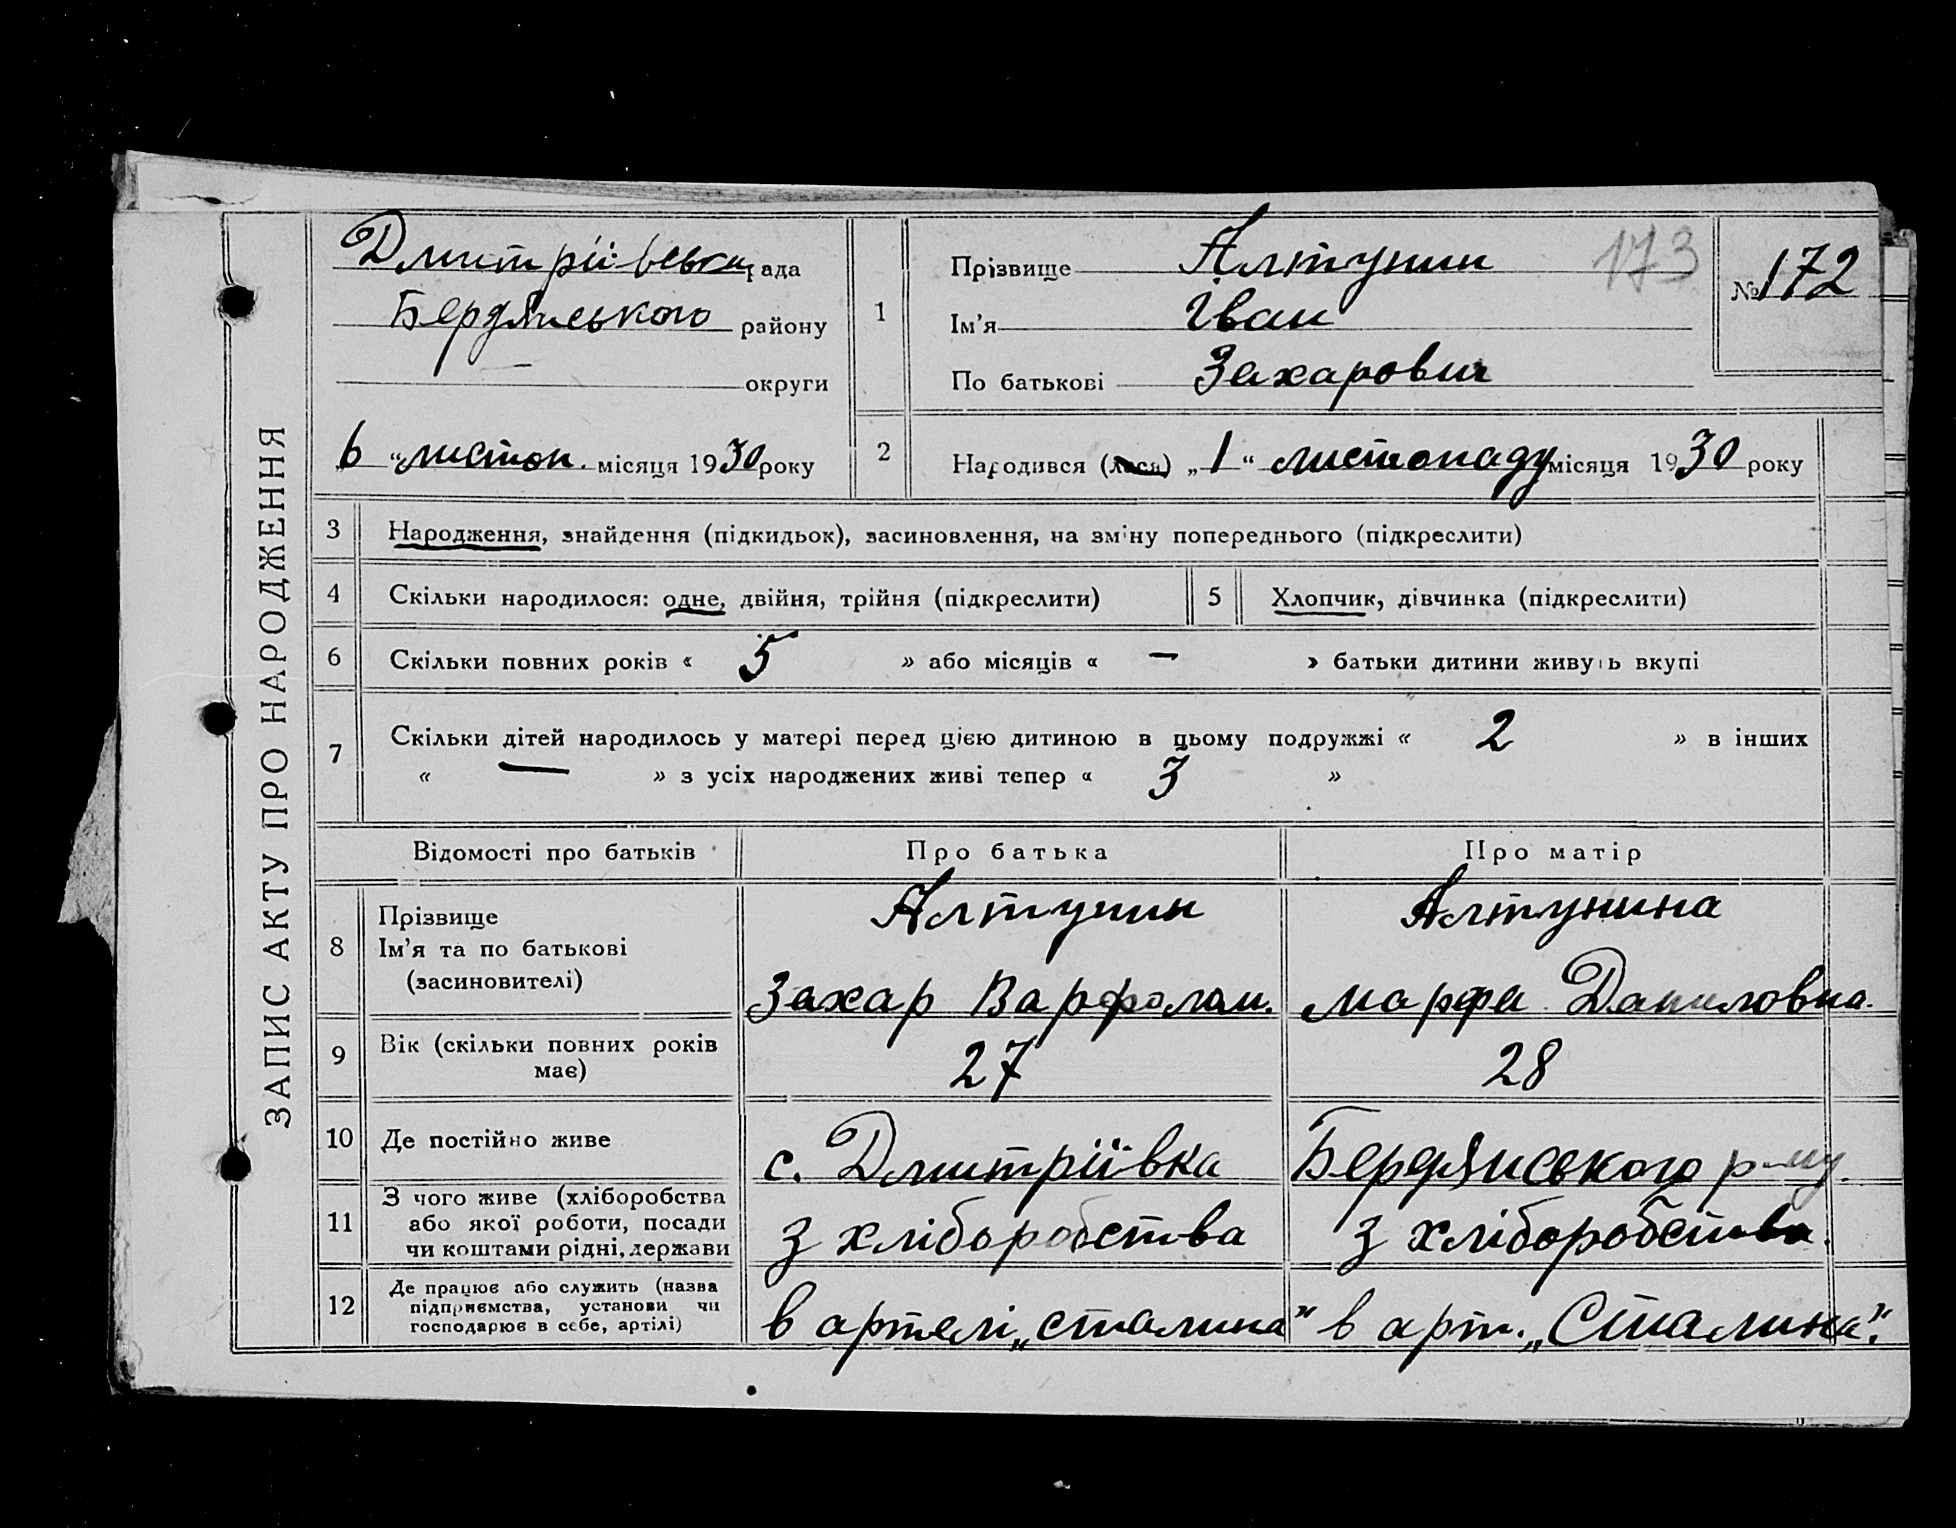 ЗАПИС АКТУ ПРО НАРОДЖЕННЯ
Дмитріївська рада
Бердянського району
— округи
„6“ листоп. місяця 1930 року
1
Прізвище Алтунин
Ім'я Іван
По батькові Захарович
173
№ 172
2
Народився (лася) „1“ листопаду місяця 1930 року
3 Народження, знайдення (підкидьок), засиновлення, на зміну попереднього (підкреслити)
4 Скільки народилося: одне, двійня, трійня (підкреслити)
5 Хлопчик, дівчинка (підкреслити)
6 Скільки повних років « 5 » або місяців « — » батьки дитини живуть вкупі
7 Скільки дітей народилось у матері перед цією дитиною в цьому подружжі « 2 » в інших
« — » з усіх народжених живі тепер « 3 »
Відомості про батьків Про батька Про матір
8 Прізвище
Ім'я та по батькові
(засиновителі)
Алтунин
Захар Варфолом.
Алтунина
Марфа Даниловна.
9 Вік (скільки повних років
має)
27 28
10 Де постійно живе с. Дмитріївка Бердянського р-ну.
11 З чого живе (хліборобства
або якої роботи, посади
чи коштами рідні, держави
з хліборобства з хліборобства.
12 Де працює або служить (назва
підприємства, установи чи
господарює в себе, артілі)
в артелі „Сталина" в арт. „Сталина".